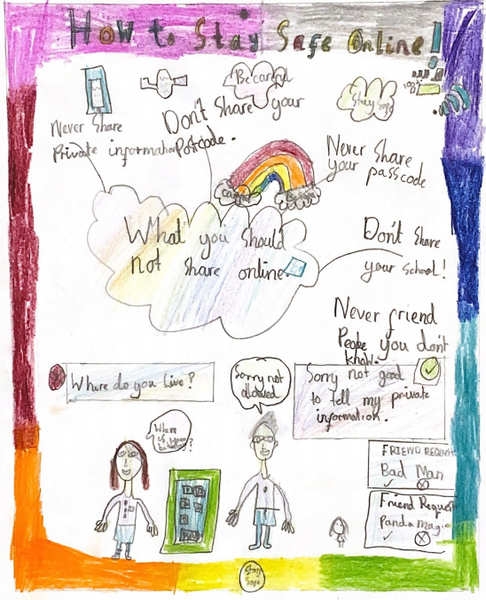 How to Stay Safe Online!
Be careful
Stay safe
100%
Never Share
Private information
Don't Share your
Postcode.
Never Share
your passcode
Careful
What you should
not share online
Don't Share
your school!
Never friend
People you don't
know.
Where do you live?
Sorry not
allowed
Sorry not good
to Tell my private
information.
Where
is your
FRIEND REQUEST
Bad Man
Friend Request
Panda Magic
Stay
Safe